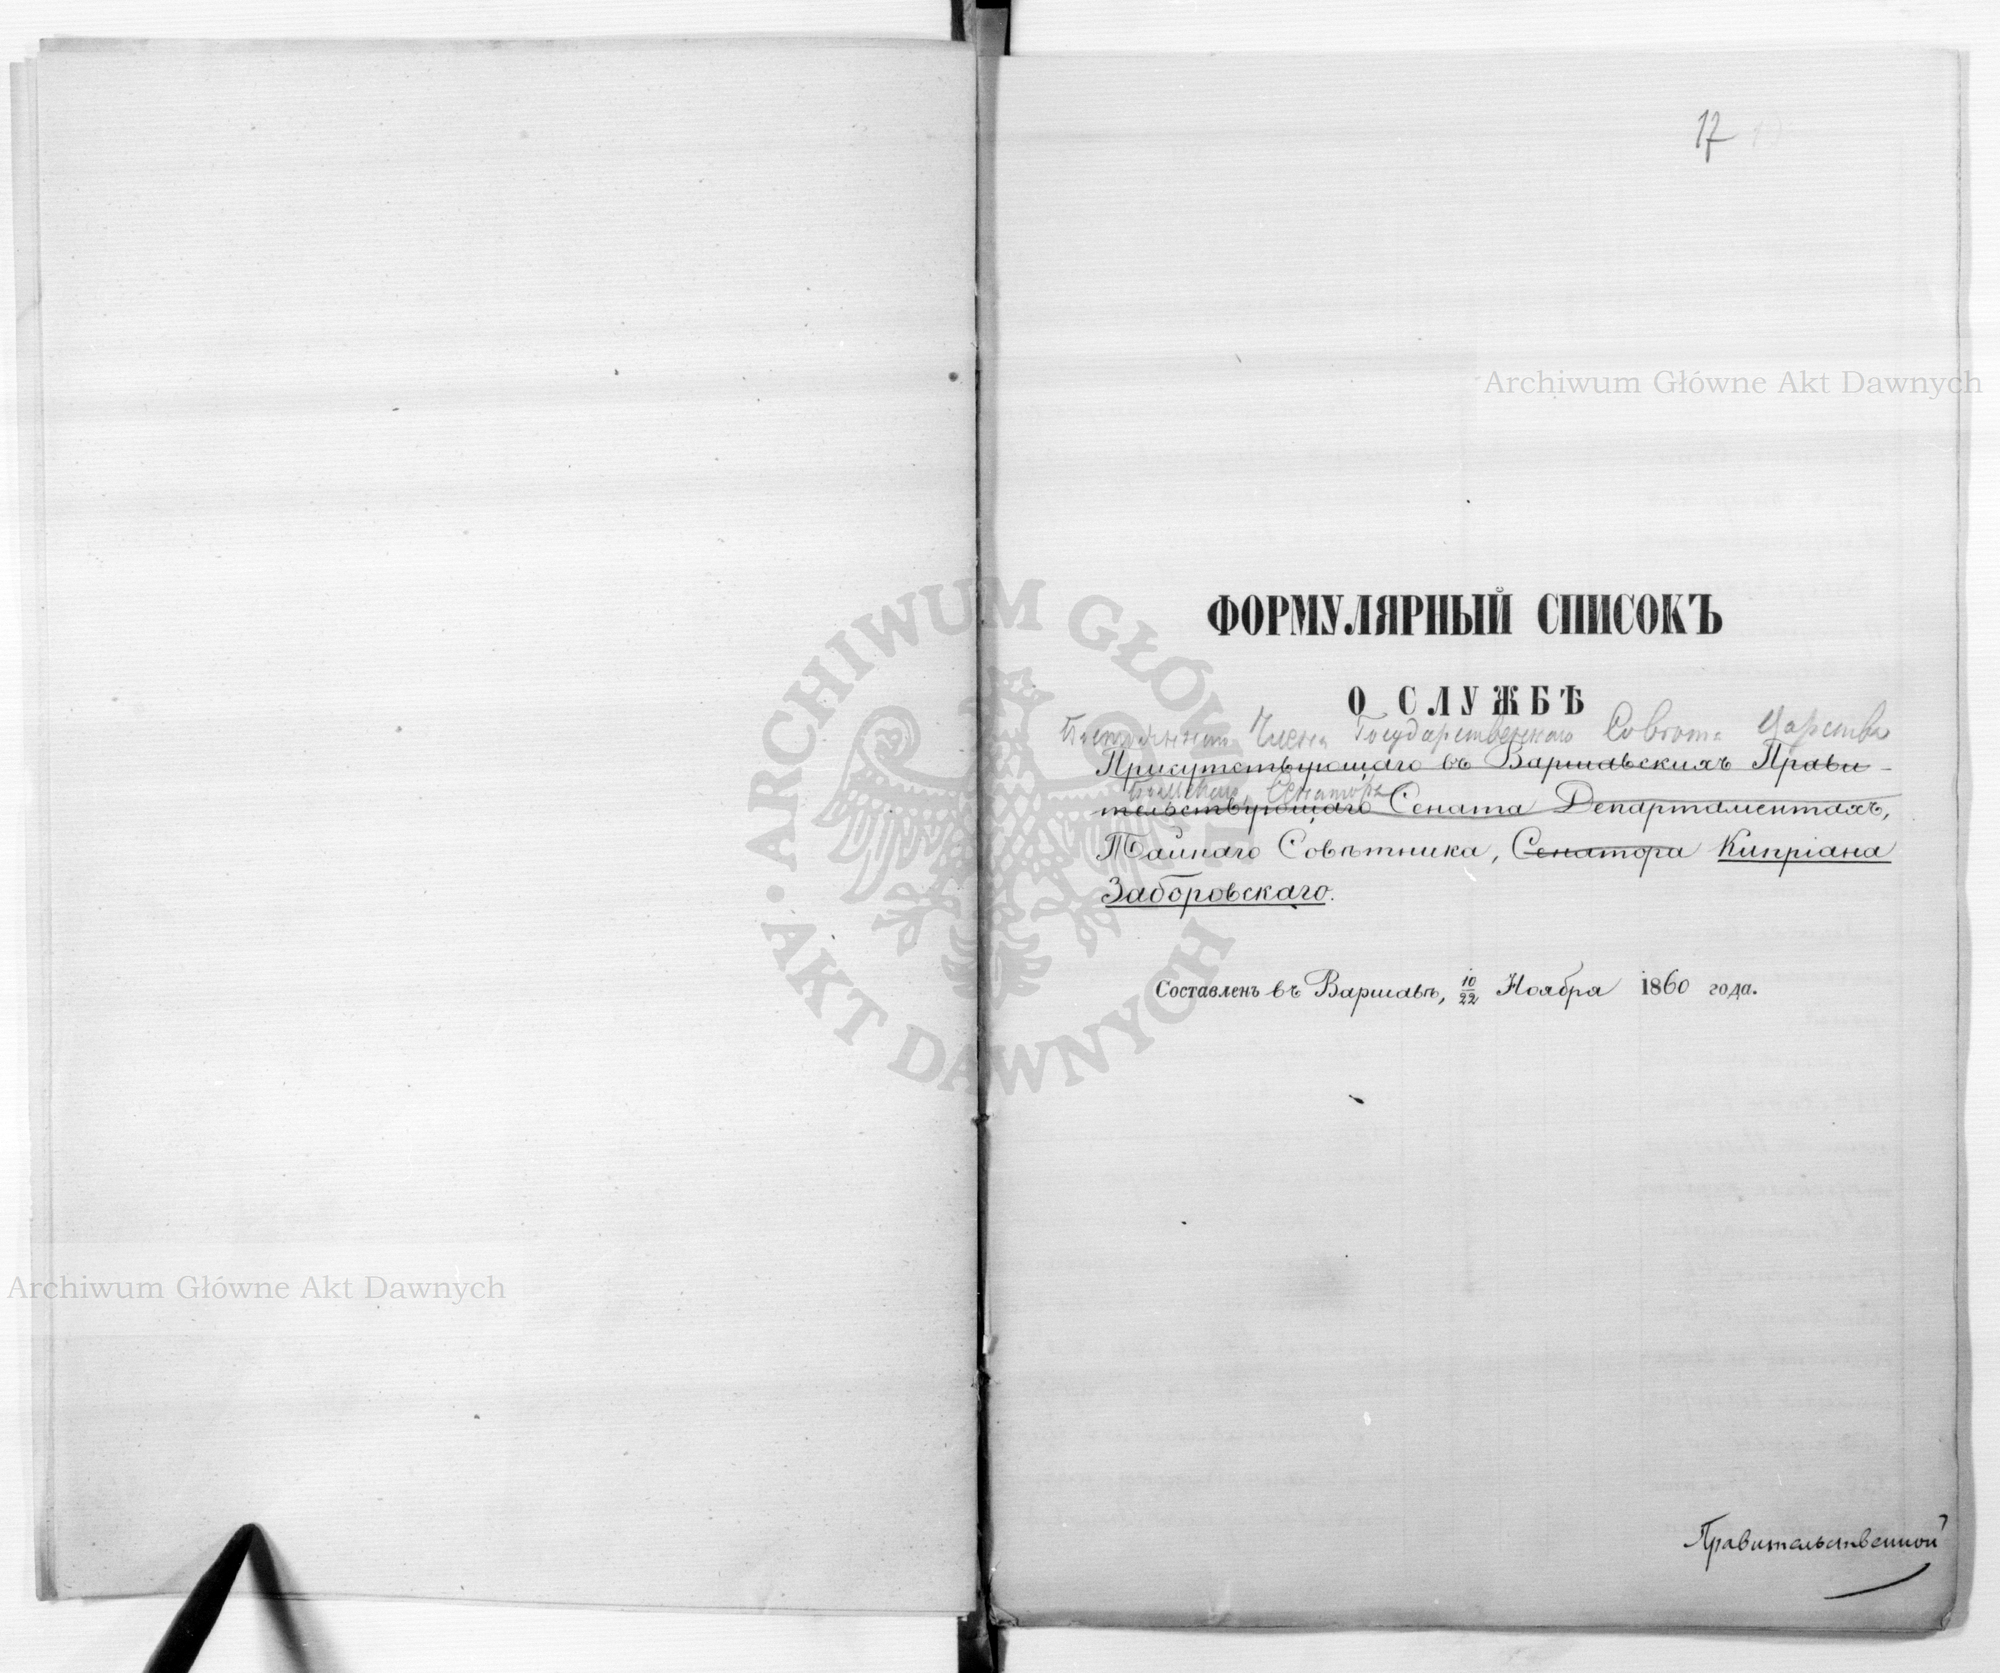 17
Archiwum Główne Akt Dawnych
ФОРМУЛЯРНЫЙ СПИСОКЪ
О СЛУЖБѢ
Постояннаго Члена Государственнаго Совѣта Царства
Присутствующаго въ Варшавскихъ Прави-
Польскаго, Сенатора
тельствующаго Сената Департаментахъ,
Тайнаго Совѣтника, Сенатора Кипріана
Заборовскаго.
Составленъ въ Варшавѣ, 10/22 Ноября 1860 года.
ARCHIWUM GŁÓWNE AKT DAWNYCH
Archiwum Główne Akt Dawnych
Правительственной